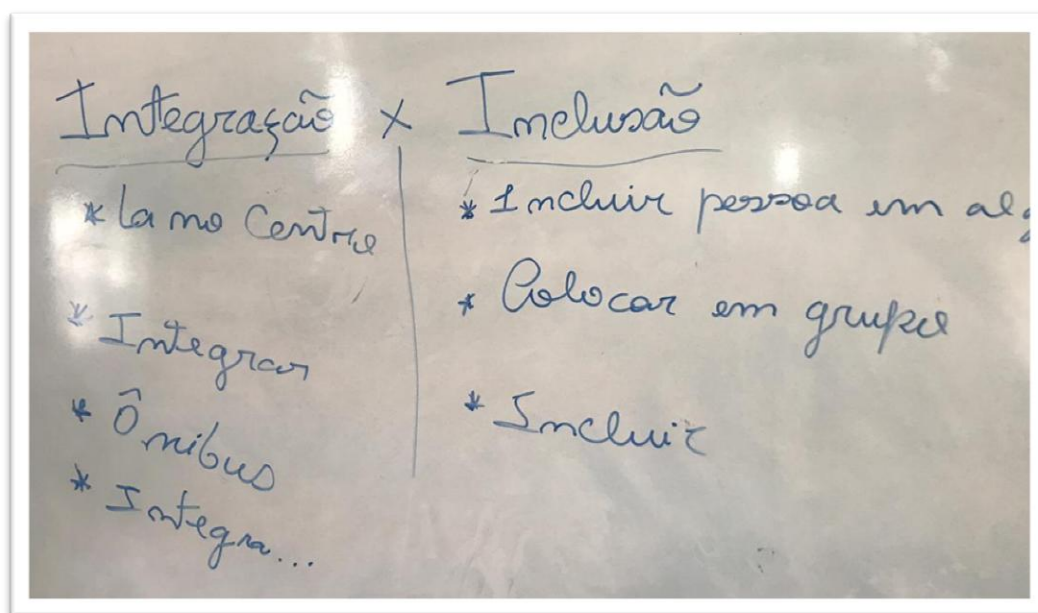 Integração x Inclusão
* La no Centro
* Integrar
* Ônibus
* Integra...
* Incluir pessoa em alg
* Colocar em grupo
* Incluir